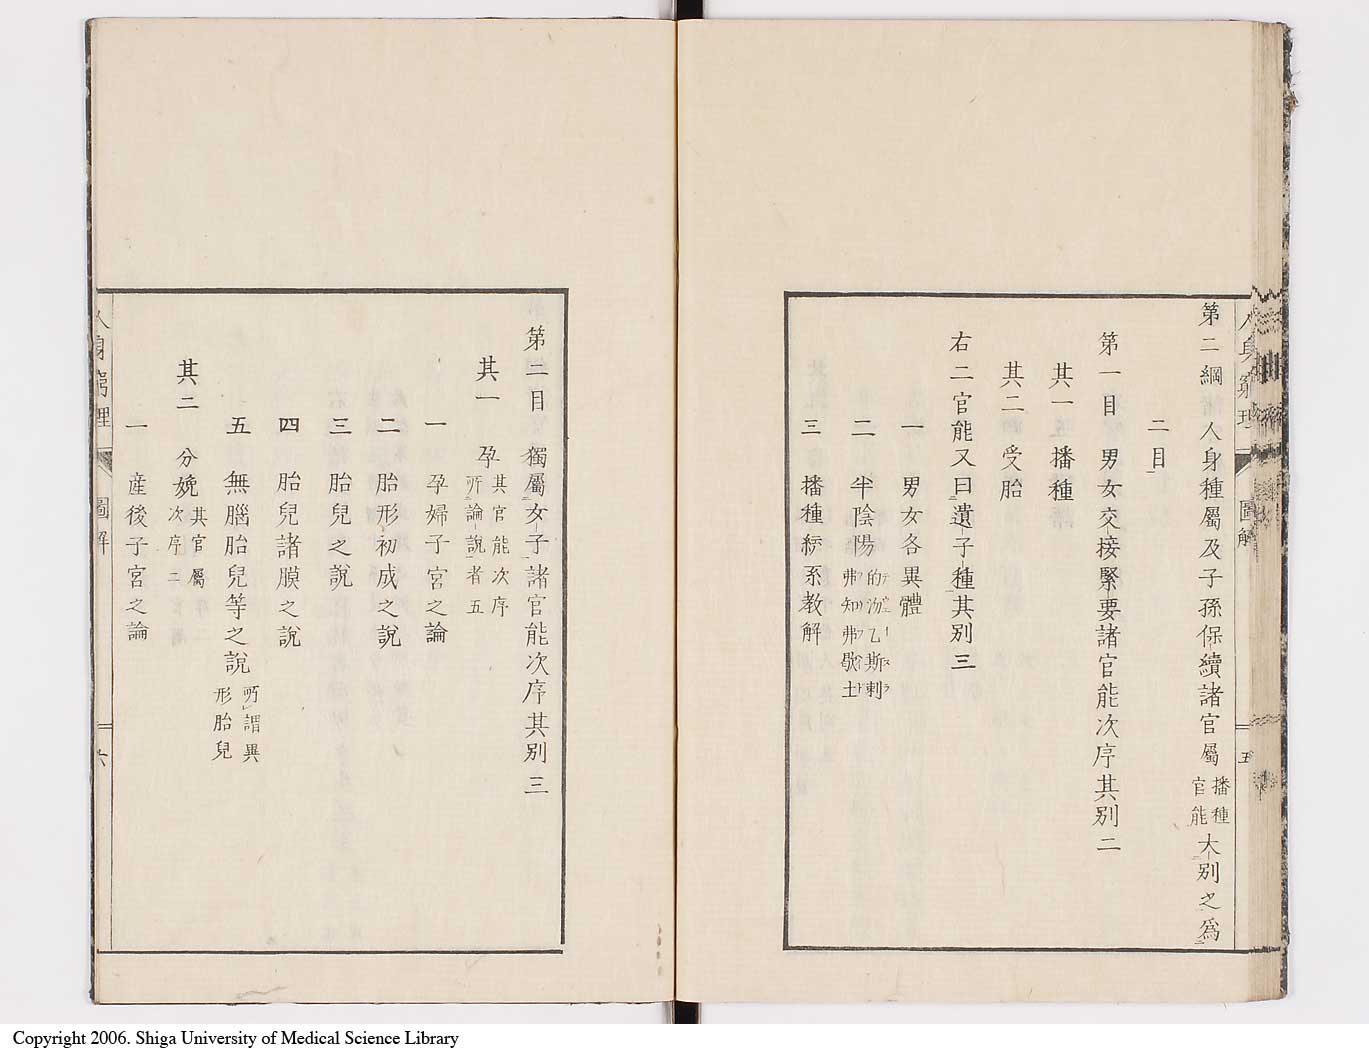 人身窮理 圖解 五
第二綱人身種屬及子孫保續諸官屬播種官能大別之爲
二目
第一目男女交接緊要諸官能次序其別二
其一播種
其二受胎
右二官能又曰遺子種其別三
一 男女各異體
二 半陰陽的沕乙斯刺弗知弗歇土
三 播種 系教解
第二目獨屬女子諸官能次序其別三
其一 孕其官能次序所論說者五
一 孕婦子宮之論
二 胎形初成之說
三 胎兒之說
四 胎兒諸膜之說
五 無腦胎兒等之說所謂異形胎兒
其二 分娩其官屬次序二
一 産後子宮之論
人身窮理 圖解 六
Copyright 2006. Shiga University of Medical Science Library